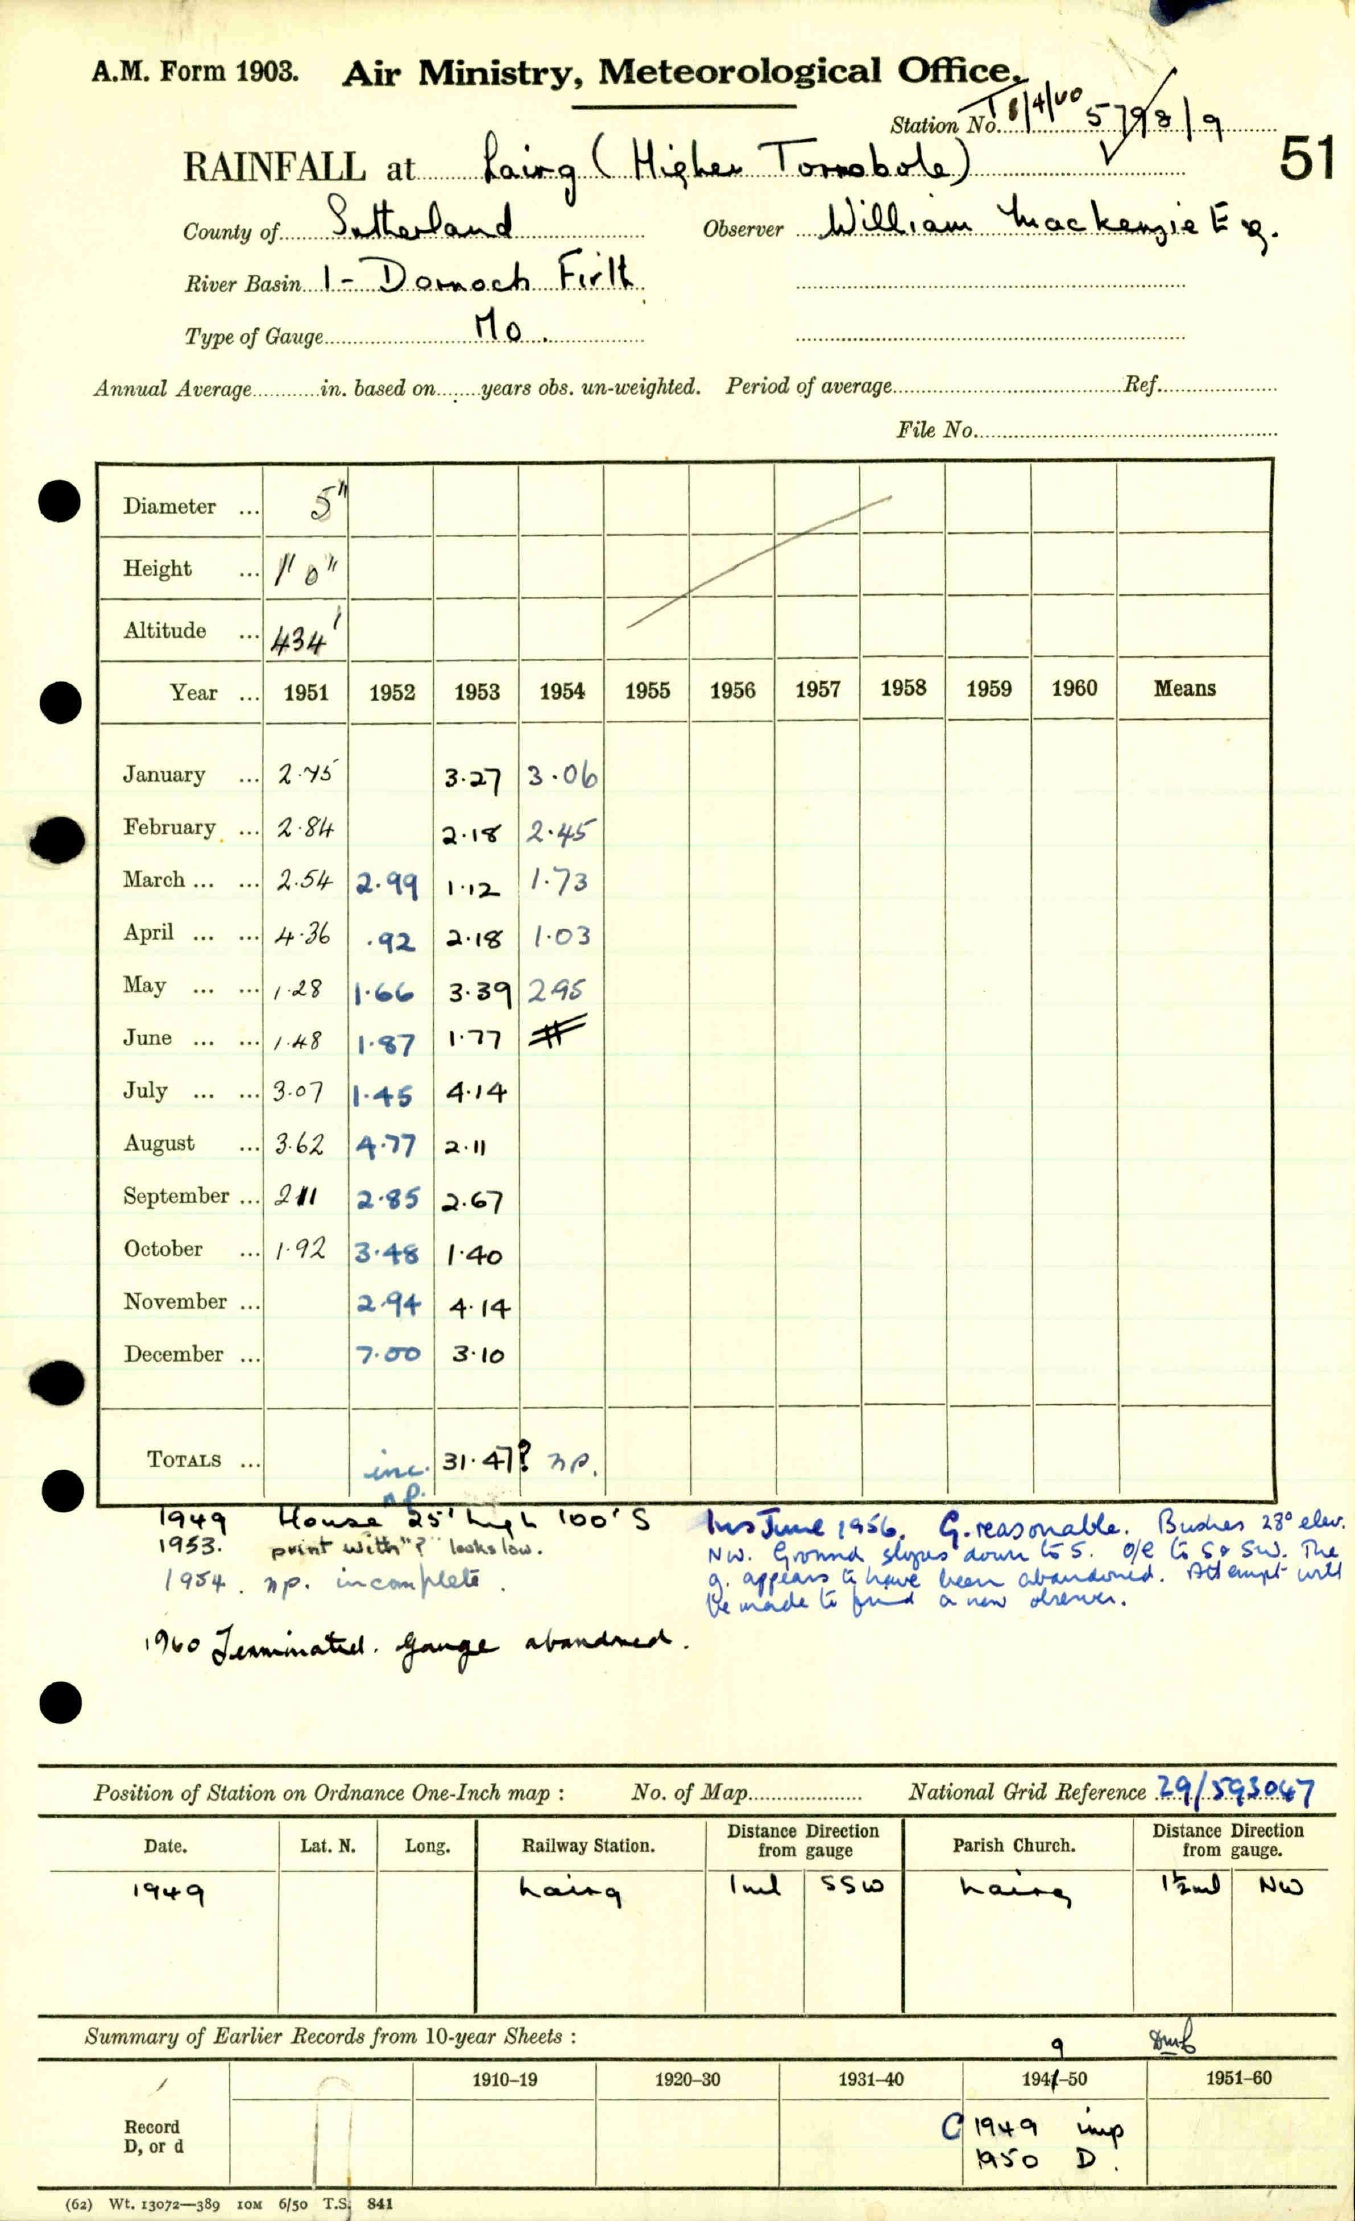 A.M. Form 1903. Air Ministry, Meteorological Office.
Station No. T 8/4/60 5798/9
RAINFALL at Lairg (Higher Torrobole) 51
County of Sutherland Observer William Mackenzie Esq.
River Basin 1 - Dornoch Firth
Type of Gauge MO.
Annual Average in. based on years obs. un-weighted. Period of average Ref.
File No.
Diameter ... 5"
Height ... 1' 0"
Altitude ... 434'
Year ... 1951 1952 1953 1954 1955 1956 1957 1958 1959 1960 Means
January ... 2.75 3.27 3.06
February ... 2.84 2.18 2.45
March ... ... 2.54 2.99 1.12 1.73
April ... ... 4.36 .92 2.18 1.03
May ... ... 1.28 1.66 3.39 2.95
June ... ... 1.48 1.87 1.77
July ... ... 3.07 1.45 4.14
August ... 3.62 4.77 2.11
September ... 2.11 2.85 2.67
October ... 1.92 3.48 1.40
November ... 2.94 4.14
December ... 7.00 3.10
TOTALS ... inc. 31.47? np.
np.
1949 House 25' high 100' S
1953. print with "?" looks low.
1954. np. incomplete.
Ins June 1956. G. reasonable. Bushes 28° elev.
NW. Ground slopes down to S. o/e to S & SW. The
g. appears to have been abandoned. Attempt will
be made to find a new observer.
1960 Terminated. Gauge abandoned.
Position of Station on Ordnance One-Inch map : No. of Map National Grid Reference 29/593047
Date. Lat. N. Long. Railway Station. Distance Direction from gauge Parish Church. Distance Direction from gauge.
1949 Lairg 1ml SSW Lairg 1½ml NW
Summary of Earlier Records from 10-year Sheets :
9
1910-19 1920-30 1931-40 1941-50 1951-60
Record
D, or d
C 1949 imp
1950 D.
(62) Wt. 13072—389 10M 6/50 T.S. 841